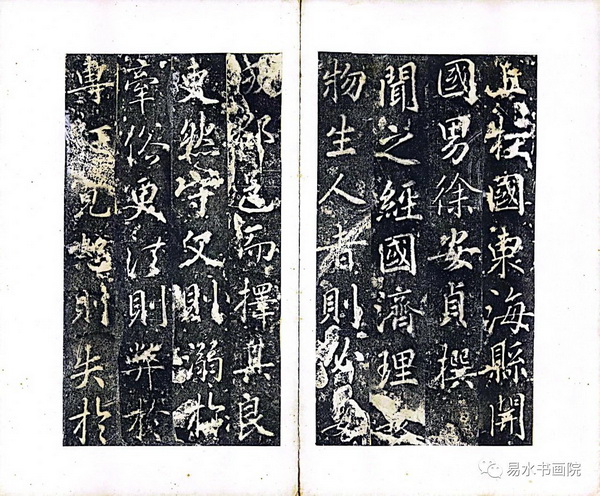 柱國東海縣開
國男徐安貞撰
聞之經國濟理
物生人者則必
成郡邑而擇其良
吏然守文則溺於
牽俗更法則弊於
專見則失於
易水书画院